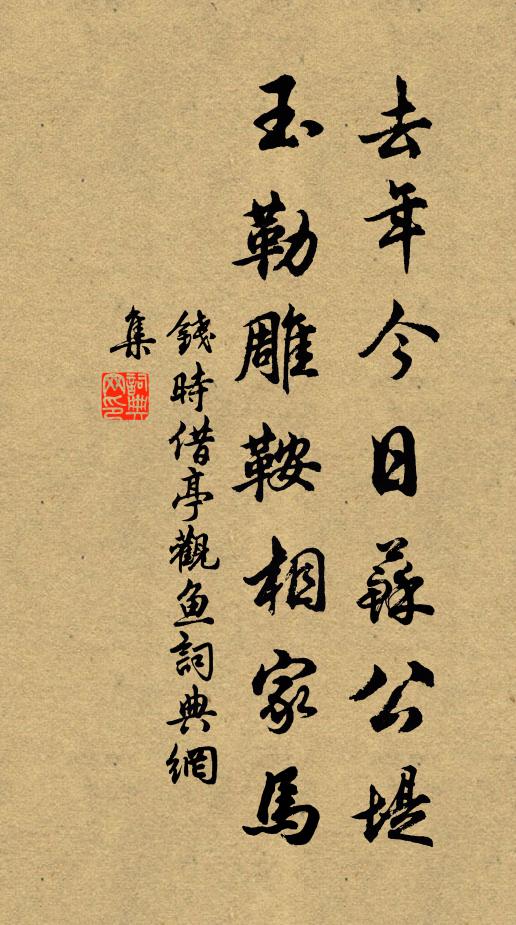 去年今日蘇公堤
玉勒雕鞍相家馬
錢時借亭觀魚詞典網
集
詞典
网印